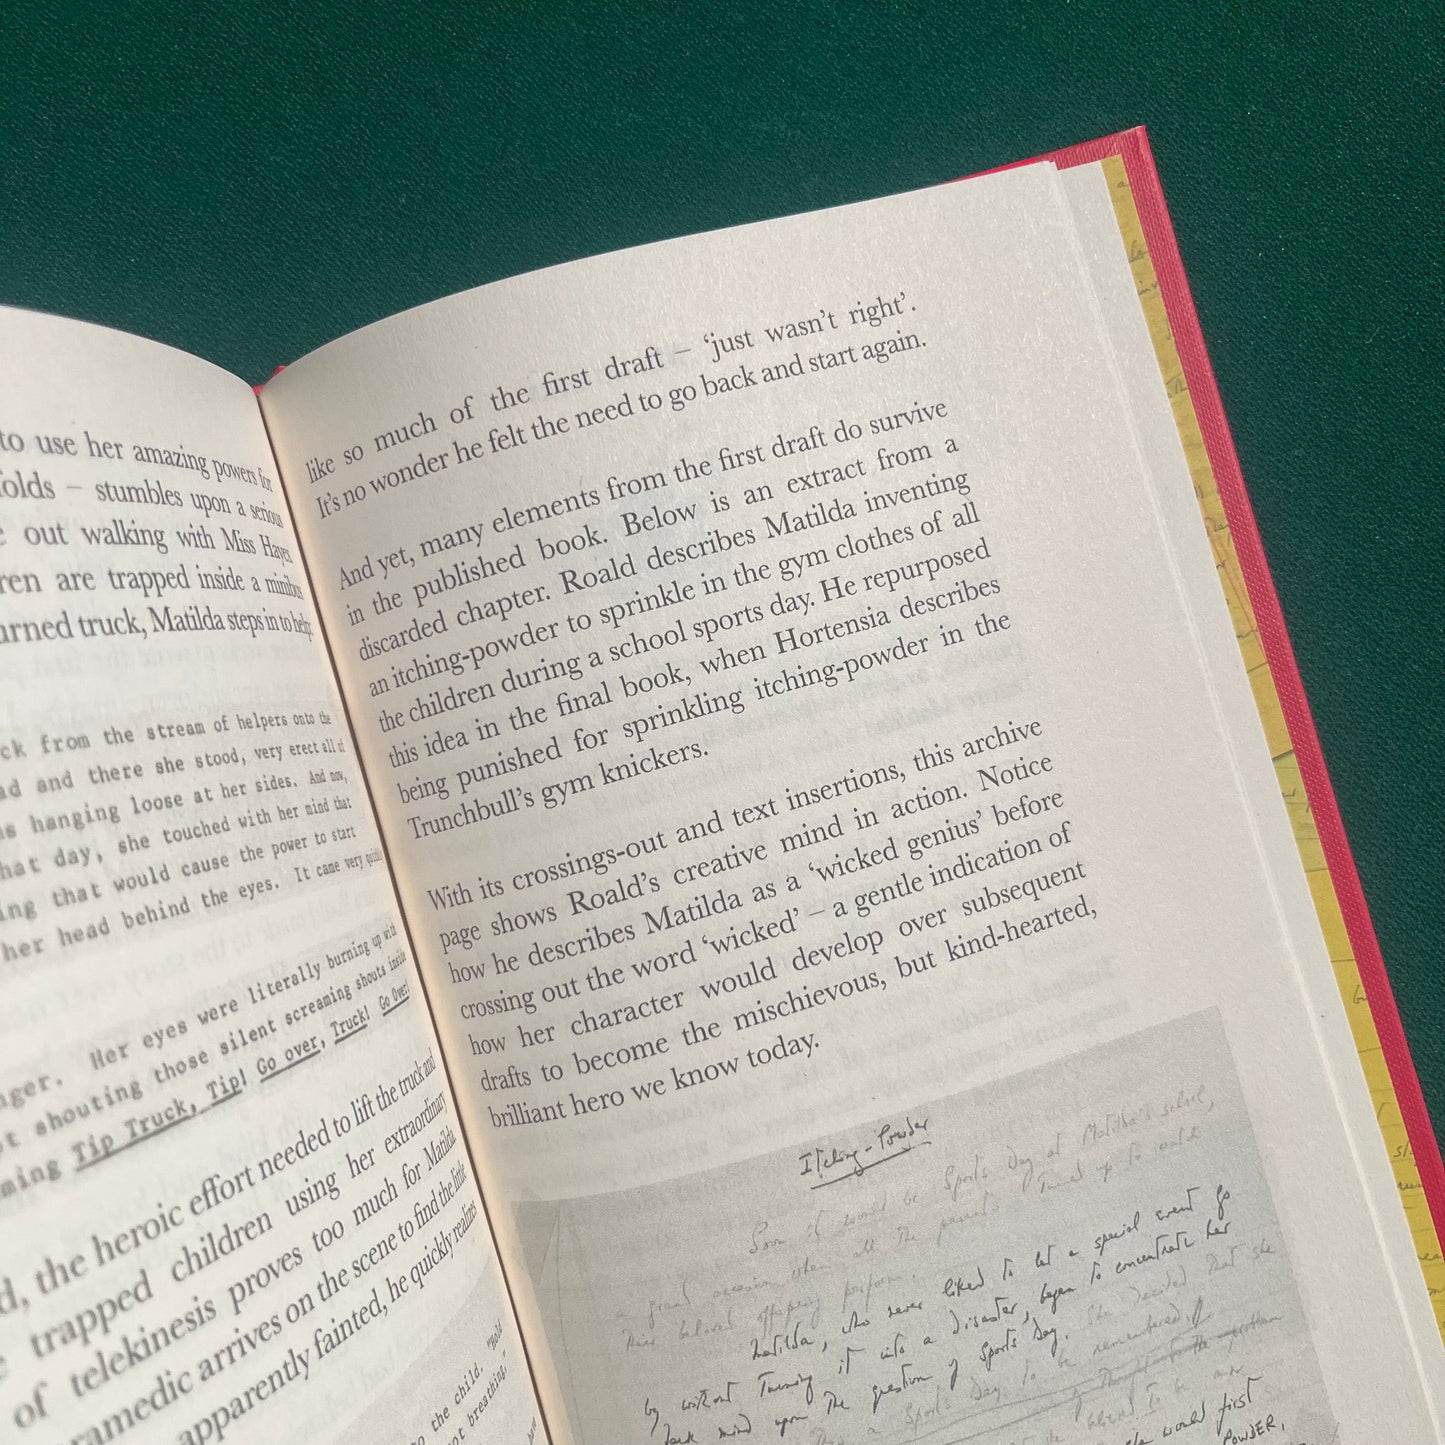 to use her amazing powers for
folds – stumbles upon a serious
out walking with Miss Hayes
ren are trapped inside a minibus
urned truck, Matilda steps in to help.
ck from the stream of helpers onto the
ad and there she stood, very erect all of
hanging loose at her sides. And now,
hat day, she touched with her mind that
ing that would cause the power to start
her head behind the eyes. It came very quickly
nger. Her eyes were literally burning up with
t shouting those silent screaming shouts inside
ming Tip Truck, Tip! Go over, Truck! Go Over!
d, the heroic effort needed to lift the truck and
trapped children using her extraordinary
of telekinesis proves too much for Matilda.
ramedic arrives on the scene to find the little
apparently fainted, he quickly realizes
to the child. "Hold
not breathing,"
like so much of the first draft – ‘just wasn’t right’.
It’s no wonder he felt the need to go back and start again.
And yet, many elements from the first draft do survive
in the published book. Below is an extract from a
discarded chapter. Roald describes Matilda inventing
an itching-powder to sprinkle in the gym clothes of all
the children during a school sports day. He repurposed
this idea in the final book, when Hortensia describes
being punished for sprinkling itching-powder in the
Trunchbull’s gym knickers.
With its crossings-out and text insertions, this archive
page shows Roald’s creative mind in action. Notice
how he describes Matilda as a ‘wicked genius’ before
crossing out the word ‘wicked’ – a gentle indication of
how her character would develop over subsequent
drafts to become the mischievous, but kind-hearted,
brilliant hero we know today.
Itching-Powder
Soon it would be Sports Day at Matilda's school,
a grand occasion when all the parents turned up to watch
their beloved offspring perform.
Matilda, who never liked to let a special event go
by without turning it into a disaster, began to concentrate her
dark mind upon the question of Sports Day. She decided that she
Sports Day to be remembered.
would first
POWDER,